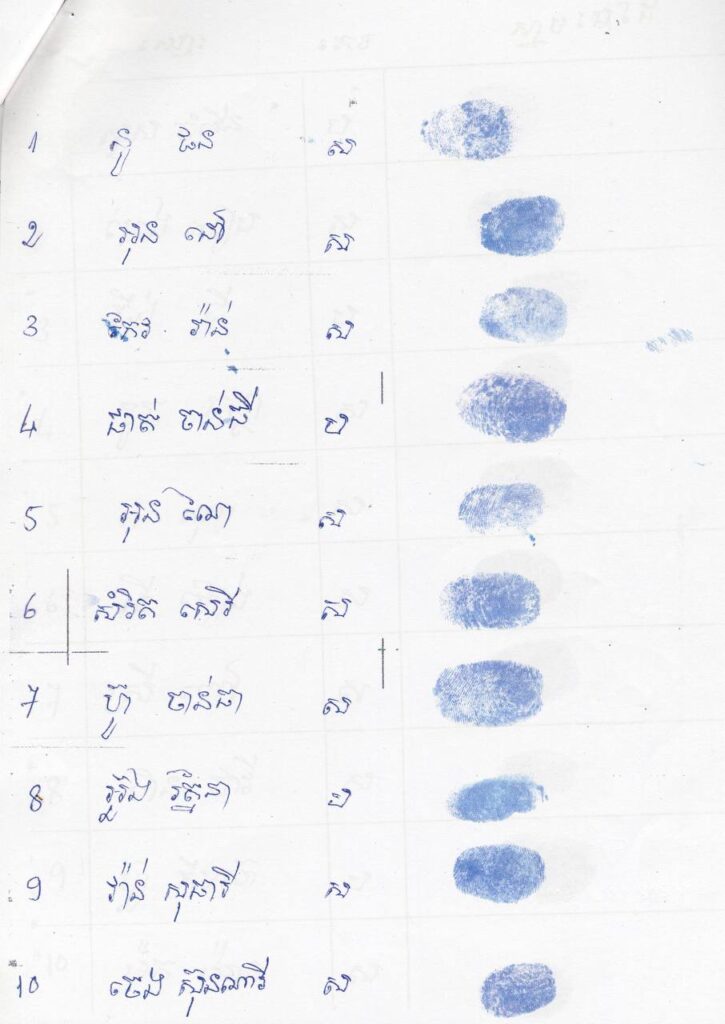 1 នូ ផន ស
2 អុន ដេរី ស
3 កែវ វ៉ាន់ ស
4 ផាត់ ចាន់ធី ប
5 អុន ណៃ ស
6 សំរិត សេរី ស
7 ប៊ូ ចាន់ធា ស
8 រ័ត្ននា ប
9 វ៉ាន់ សុផារី ស
10 ចេង ស៊ុនណារី ស